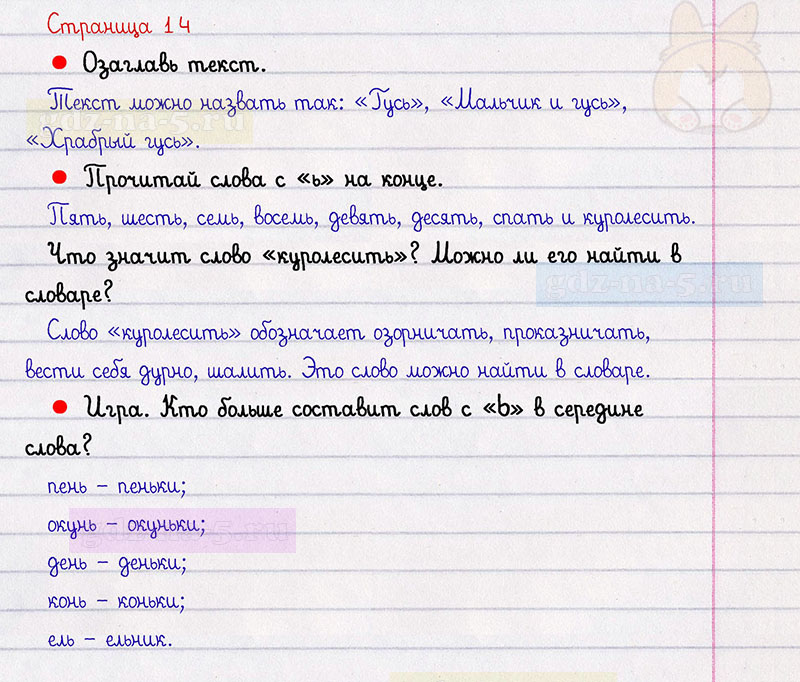 Страница 14
• Озаглавь текст.
Текст можно назвать так: «Гусь», «Мальчик и гусь»,
«Храбрый гусь».
• Прочитай слова с «ь» на конце.
Пять, шесть, семь, восемь, девять, десять, спать и куролесить.
Что значит слово «куролесить»? Можно ли его найти в
словаре?
Слово «куролесить» обозначает озорничать, проказничать,
вести себя дурно, шалить. Это слово можно найти в словаре.
• Игра. Кто больше составит слов с «ь» в середине
слова?
пень – пеньки;
окунь – окуньки;
день – деньки;
конь – коньки;
ель – ельник.
gdz-na-5.ru
gdz-na-5.ru
gdz-na-5.ru